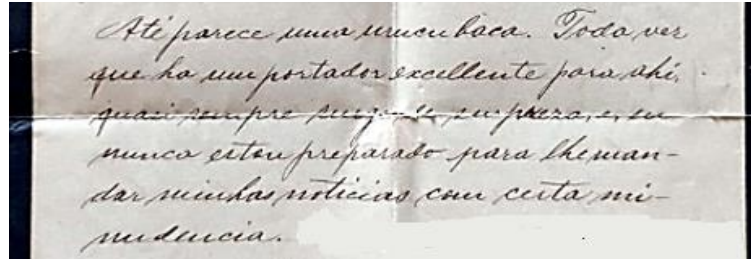 Até parece uma urucubaca. Toda vez
que ha um portador excellente para ahi,
quasi sempre surge de surpreza, e, eu
nunca estou preparado para lhe man-
dar minhas noticias com certa mi-
nudencia.